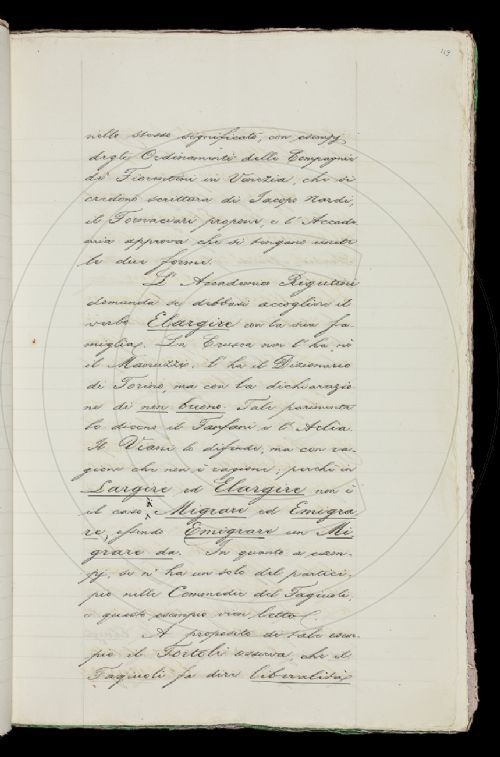 119
nello stesso significato, con esempj
degli Ordinamenti della Compagnia
de' Fiorentini in Venezia, che si
credono scrittura di Jacopo Nardi,
il Fornaciari propone, e l'Accade
mia approva che si tengano unite
le due forme.
L'Accademico Rigutini
domanda se debbasi accogliere il
verbo Elargire con la sua fa-
miglia. La Crusca non l'ha, nè
il Manuzzi; l'ha il Dizionario
di Torino, ma con la dichiarazio-
ne di non buono. Tale parimente
lo dicono il Fanfani e l'Arlia.
Il Viani lo difende, ma con ra-
gione che non è ragione; perchè in
Largire ed Elargire non è
il caso di Migrare ed Emigra
re, essendo Emigrare un Mi
grare da. In quanto a esem-
pj, se n'ha un solo del partici-
pio nelle Commedie del Fagiuoli,
e questo esempio vien letto.
A proposito di tale esem-
pio il Tortoli osserva, che il
Fagiuoli fa dire liberalità